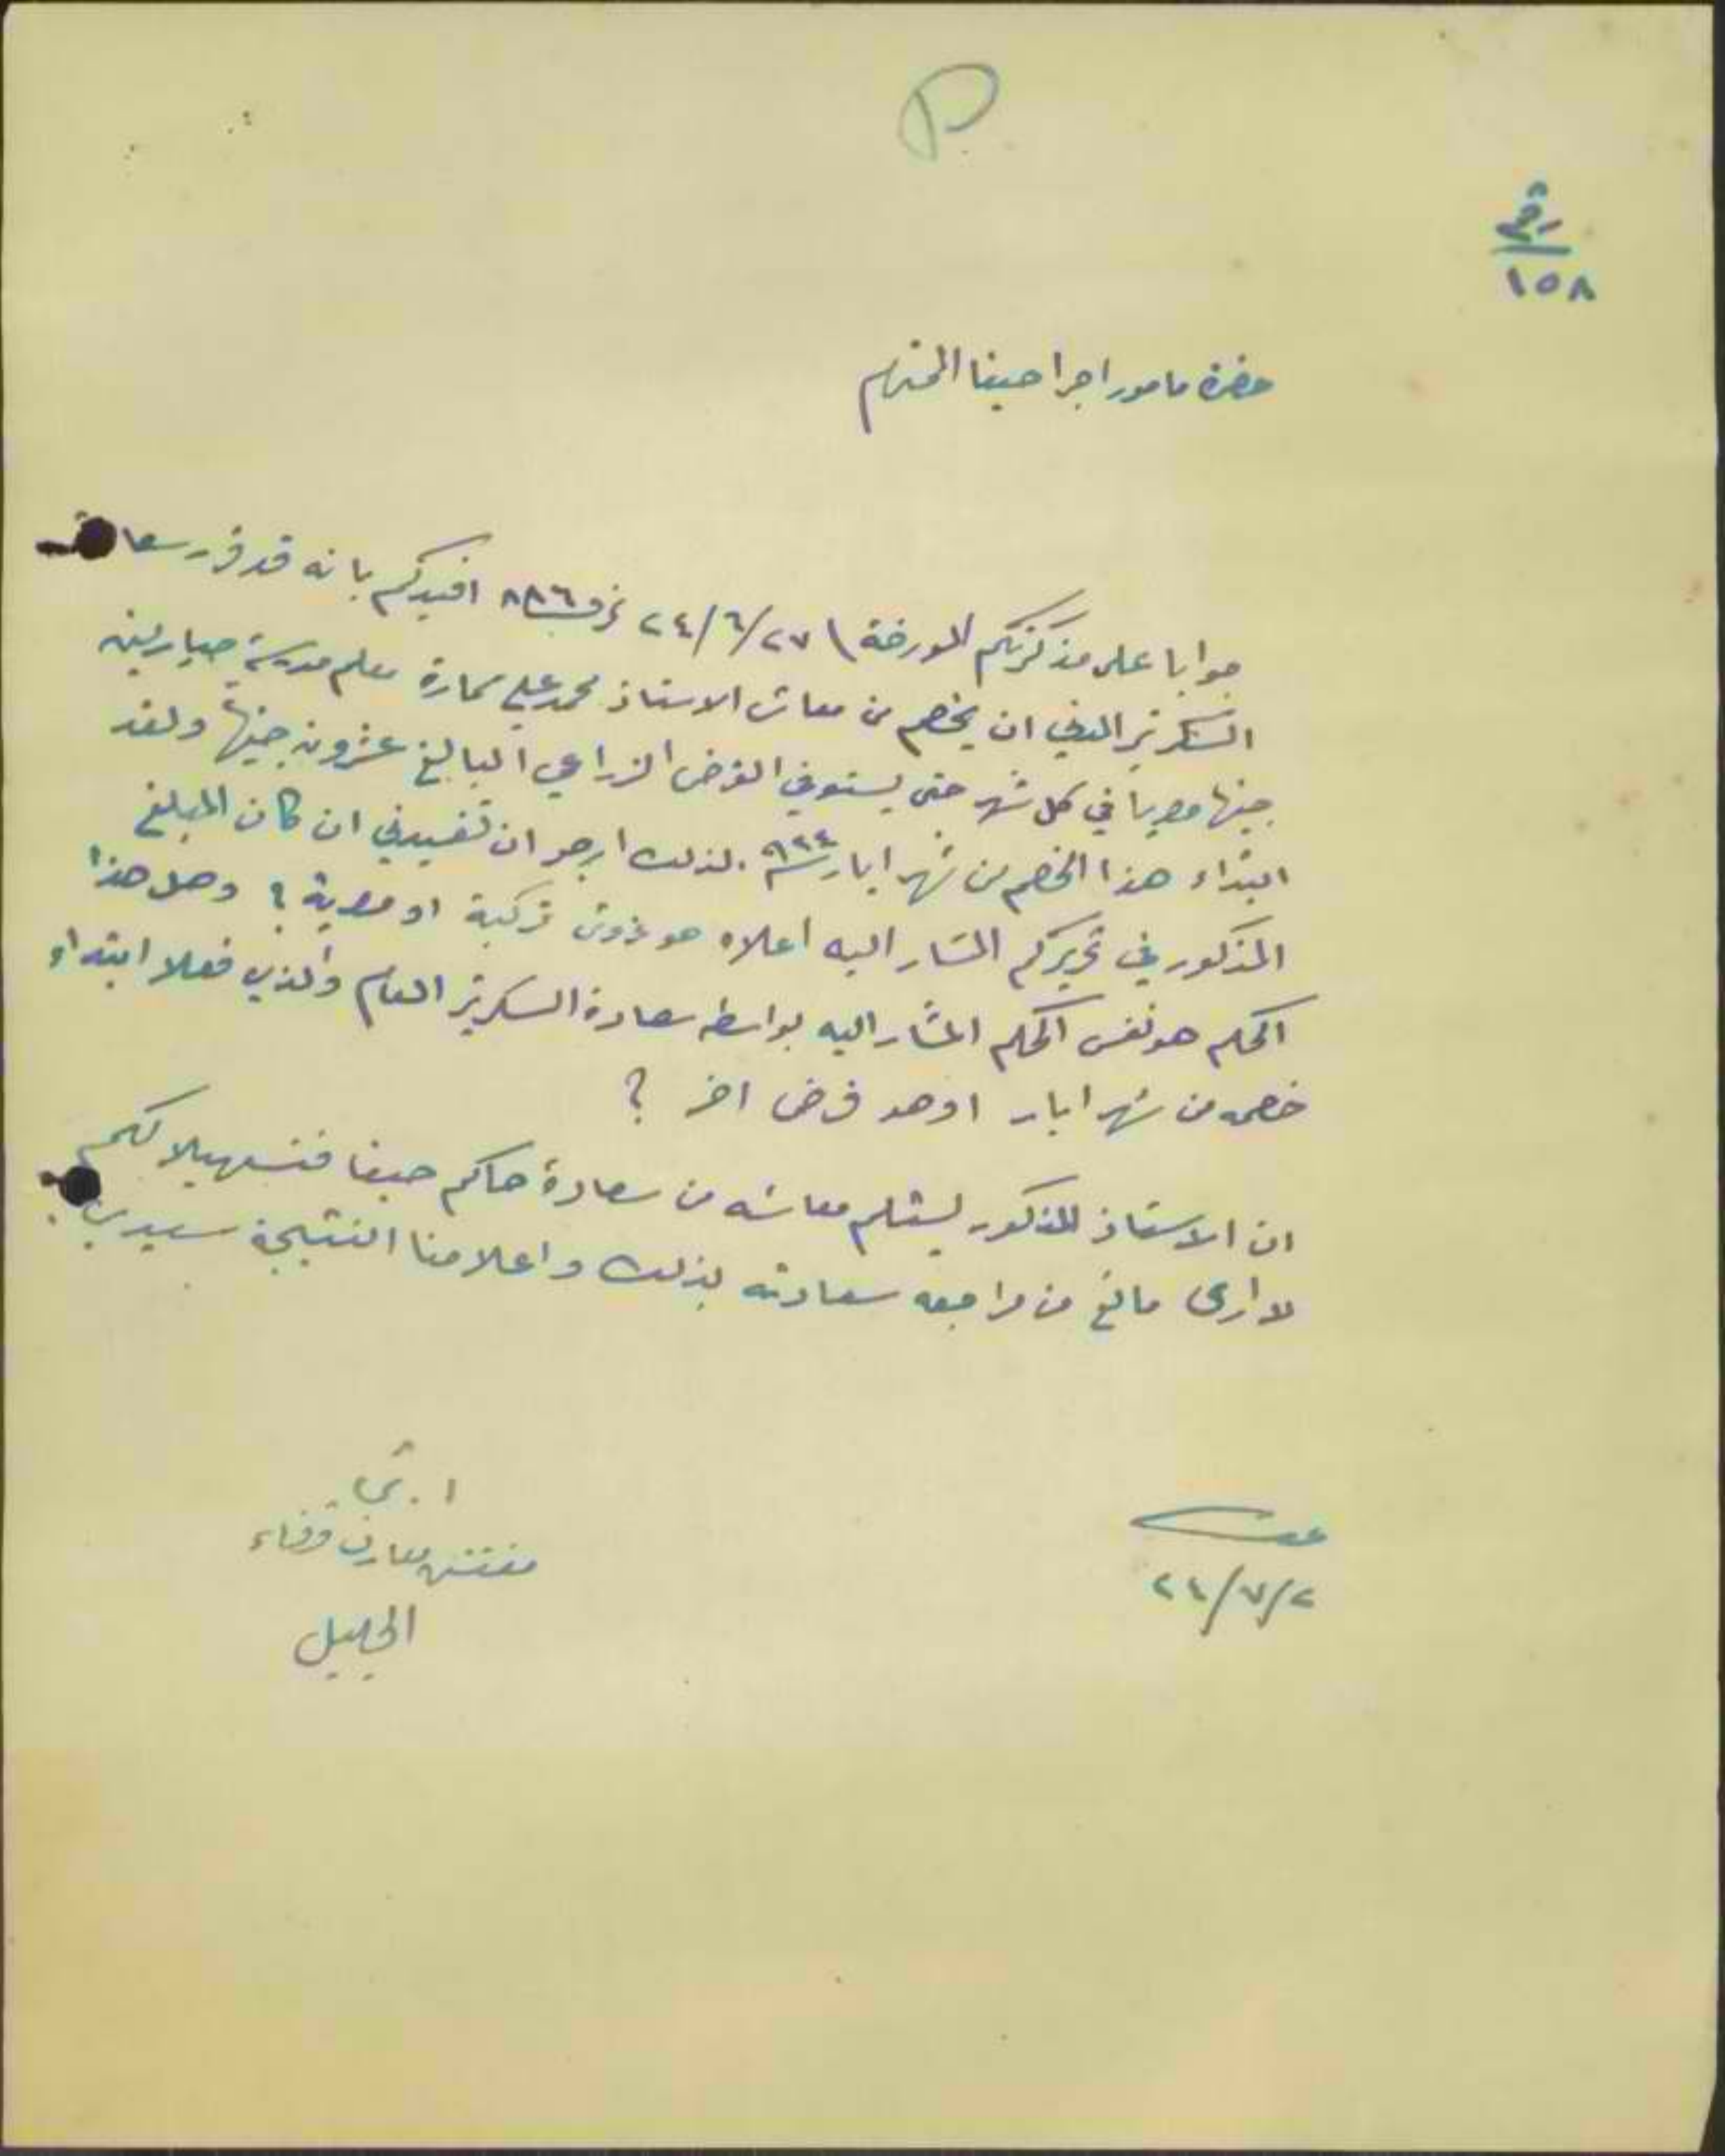 P
رقم
١٥٨
حضرة مامور اجرا حيفا المحترم
جوابا على مذكرتكم المورخة \ ٢٧/٦/٢٤ نمرو ٨٨٦ افيدكم بانه قد قرر سعادة
السكرتير المدني ان يخصم من معاش الاستاذ محمد علي سمارة معلم مدرسة صبارين
جنيها مصريا في كل شهر حتى يستوفي القرض الزراعي البالغ عشرون جنيهاً ولقد
ابتداء هذا الخصم من شهر ايار سنة ٩٢٤ . لذلك ارجو ان تفيدني ان كان المبلغ
المذكور في تحريركم المشار اليه اعلاه هو غروش تركية او مصرية ؟ وهل هذا
الحكم هو نفس الحكم المشار اليه بواسطه سعادة السكرتير العام والذي فعلا ابتداء
خصمه من شهر ايار او هو قرض اخر ؟
ان الاستاذ المذكور يستلم معاشه من سعادة حاكم حيفا فتسهيلا لكم
لا ارى مانع من مراجعه سعادته بذلك واعلامنا النتيجة سيدي .
عكا
٢/٧/٢٤
مفتش معارف قضاء
الجليل